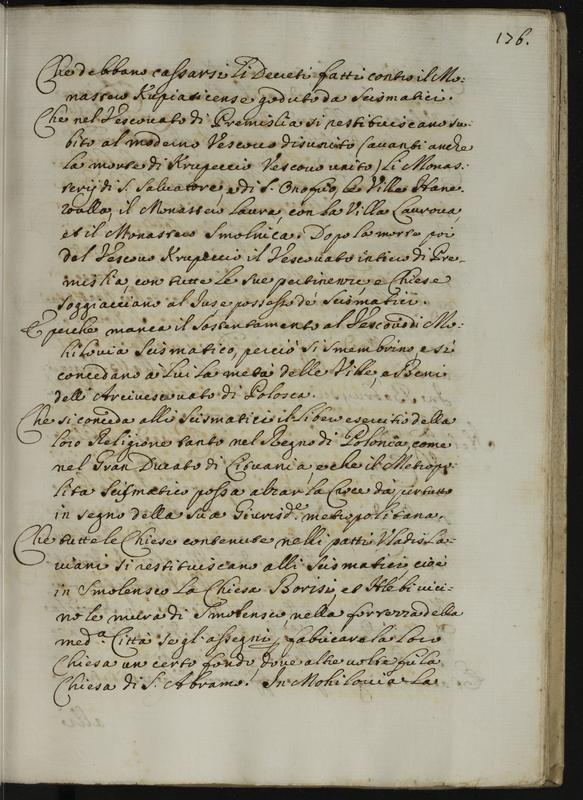 176.
Che debbano cassarsi li Decreti fatti contro il Mo:
nastero Kupiaticense goduto da Scismatici.
Che nel Vescouato di Premislia si restituiscano su:
bito al moderno Vescouo disunito (auanti anche
la morte di Krupeccio Vescouo unito) li Monas:
terij di S. Saluatore, e di S. Onofrio, le Ville
il Monastero Laura, con la Villa Laurova,
et il Monastero Smolnica. Dopo la morte poi
del Vescouo Krupeccio il Vescouato intiero di Pre:
mislia, con tutte le sue pertinenze e Chiese
soggiacciano al Jus e possesso de Scismatici.
E perche manca il sostentamento al Vescouo di Mo:
hilouia Scismatico, perciò si smembrino, e si
concedano à lui la metà delle Ville, e Beni
dell'Arciuescouato di Polosca.
Che si conceda alli Scismatici il libero esercitio della
loro Religione tanto nel Regno di Polonia, come
nel Gran Ducato di Lituania, e che il Metropo:
lita Scismatico possa alzar la Croce da per tutto
in segno della sua Giurisd.e metropolitana.
Che tutte le Chiese contenute nelli patti Vladisla:
uiani si restituiscano alli Scismatici cioè
in Smolensco la Chiesa Borisi, et Hlebi vici:
no le mura di Smolensco, nella fortezza della
med.a Città se gl'assegni, fabricare la loro
Chiesa un certo fondo, doue altre uolte fù la
Chiesa di S. Abramo. In Mohilouia la